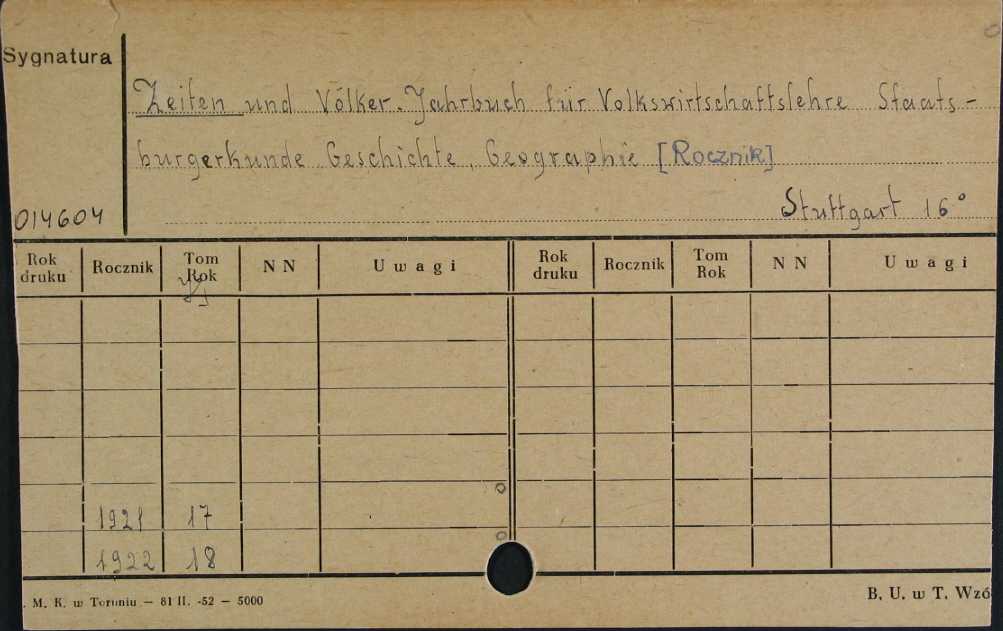 Sygnatura
Zeiten und Völker. Jahrbuch für Volkswirtschaftslehre Staats-
burgerkunde Geschichte, Geographie [Rocznik]
014604 Stuttgart 16°
Rok druku Rocznik Tom Rok NN Uwagi Rok druku Rocznik Tom Rok NN Uwagi
1921 17
1922 18
. M. K. w Toruniu — 81 II. -52 — 5000 B. U. w T. Wzó